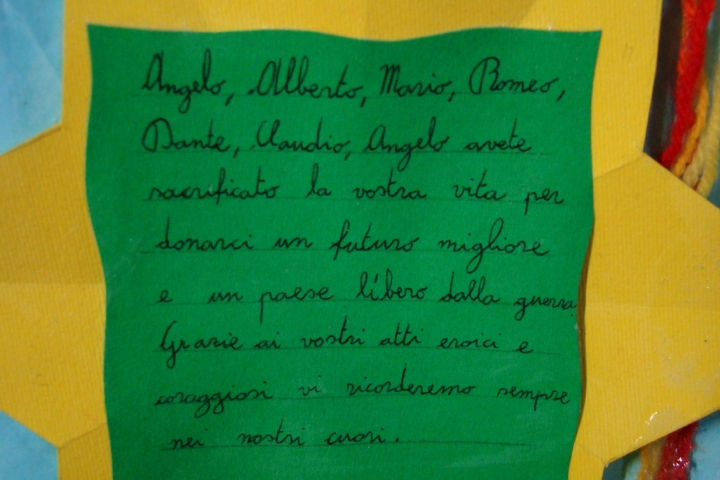 Angelo, Alberto, Mario, Romeo,
Dante, Claudio, Angelo avete
sacrificato la vostra vita per
donarci un futuro migliore
e un paese libero dalla guerra.
Grazie ai vostri atti eroici e
coraggiosi vi ricorderemo sempre
nei nostri cuori.